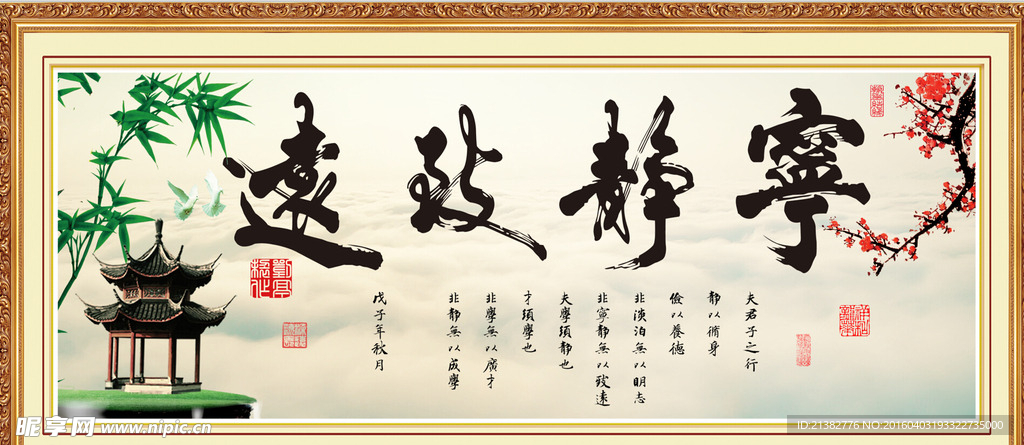 寧靜致遠
夫君子之行
靜以脩身
儉以養德
非淡泊無以明志
非寧靜無以致遠
夫學須靜也
才須學也
非學無以廣才
非靜無以成學
戊子年秋月
昵享网 www.nipic.cn
ID:21382776 NO:20160403193322735000